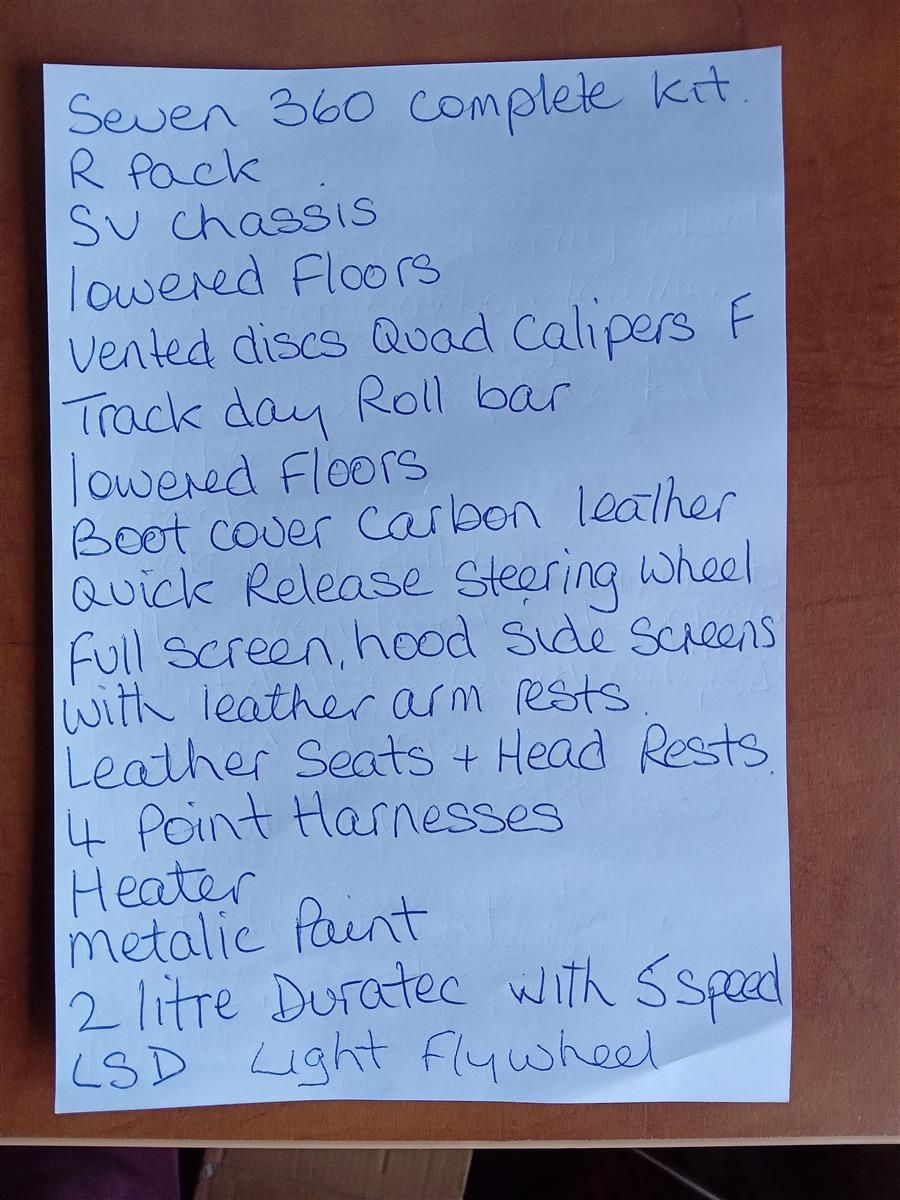 Seven 360 complete kit.
R Pack
SV chassis
lowered Floors
Vented discs Quad Calipers F
Track day Roll bar
lowered Floors
Boot cover Carbon leather
Quick Release Steering Wheel
Full screen, hood Side Screens
with leather arm rests.
Leather Seats + Head Rests.
4 Point Harnesses
Heater
Metalic Paint
2 litre Duratec with 5 speed
LSD Light Flywheel